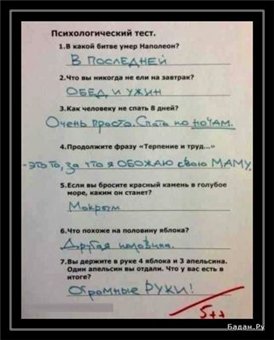 Психологический тест.
1.В какой битве умер Наполеон?
В ПОСЛЕДНЕЙ
2.Что вы никогда не ели на завтрак?
ОБЕД И УЖИН
3.Как человеку не спать 8 дней?
Очень просто. Спать по НОЧАМ.
4.Продолжите фразу «Терпение и труд...»
- это то, за что я ОБОЖАЮ свою МАМУ.
5.Если вы бросите красный камень в голубое
море, каким он станет?
Мокрым
6.Что похоже на половину яблока?
Другая половина.
7.Вы держите в руке 4 яблока и 3 апельсина.
Один апельсин вы отдали. Что у вас есть в
итоге?
Огромные РУКИ!
5++
Бадан.Ру